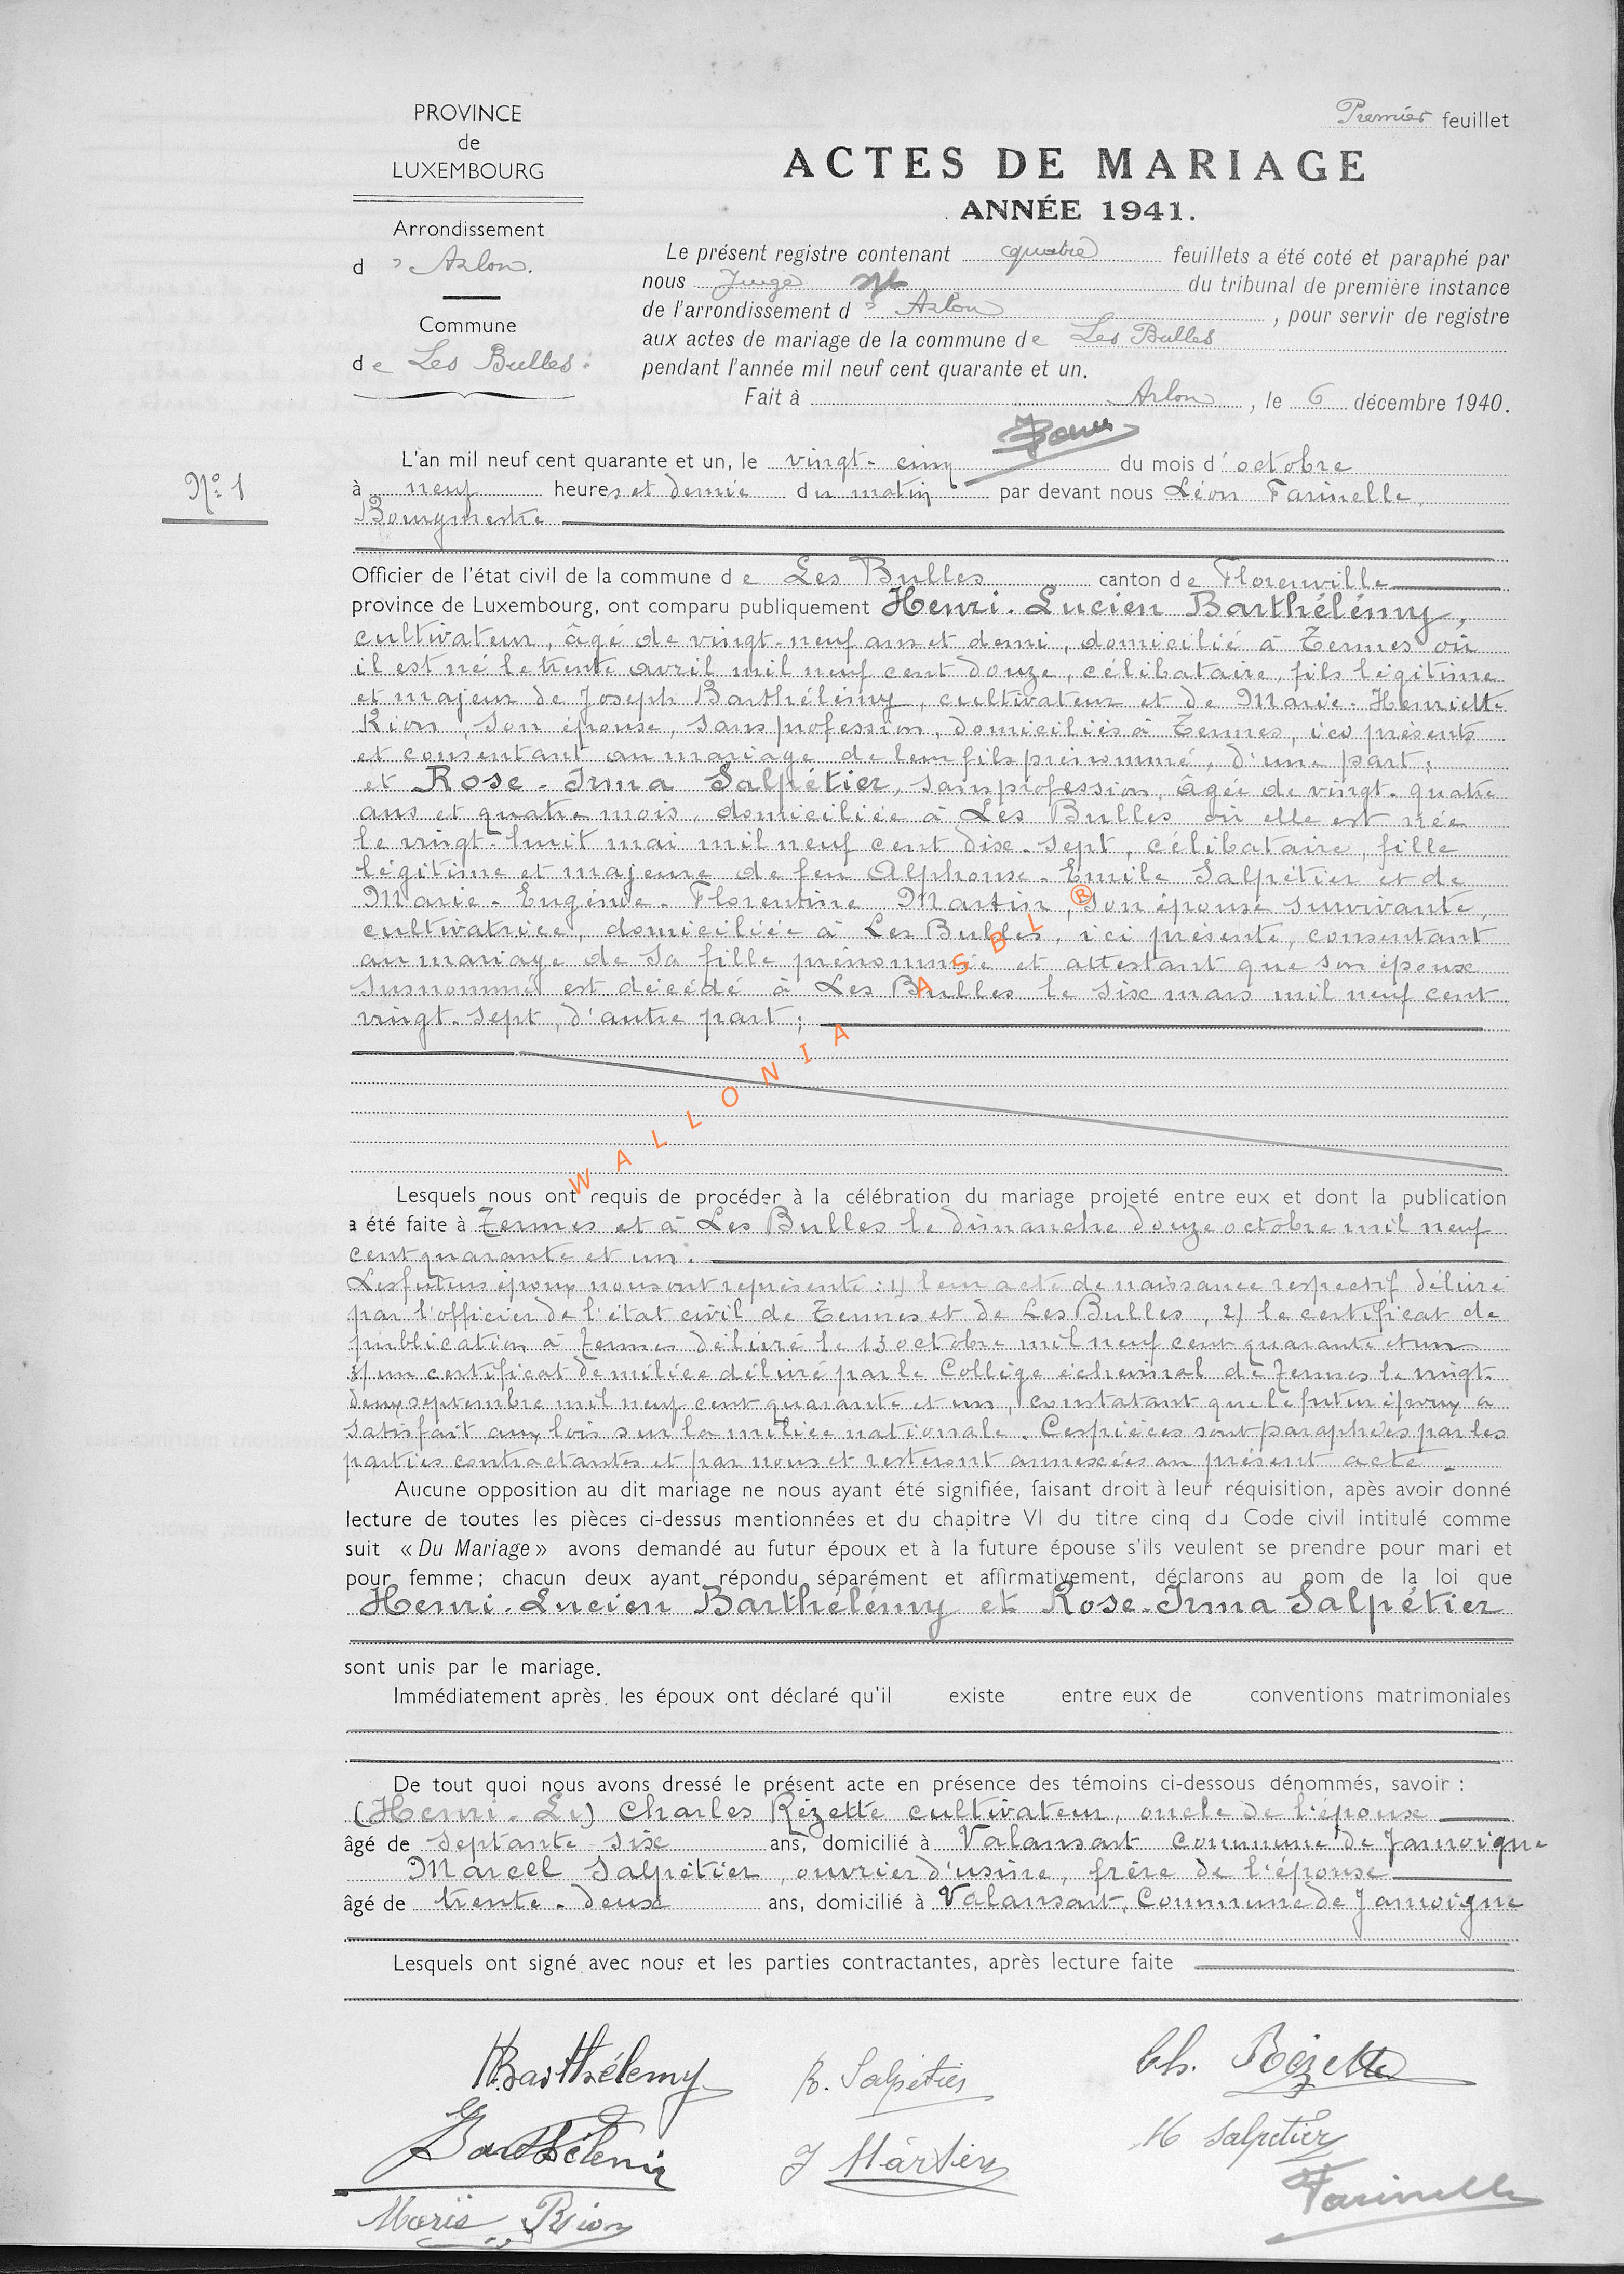 PROVINCE
de
LUXEMBOURG
Arrondissement
d' Arlon.
Commune
de Les Bulles.
Premier feuillet
ACTES DE MARIAGE
ANNÉE 1941.
Le présent registre contenant quatre feuillets a été coté et paraphé par
nous Juge du tribunal de première instance
de l'arrondissement d' Arlon, pour servir de registre
aux actes de mariage de la commune de Les Bulles
pendant l'année mil neuf cent quarante et un.
Fait à Arlon, le 6 décembre 1940.
No. 1
L'an mil neuf cent quarante et un, le vingt-cinq du mois d'octobre
à neuf heures et demie du matin par devant nous Léon Farinelle,
Bourgmestre
Officier de l'état civil de la commune de Les Bulles canton de Florenville
province de Luxembourg, ont comparu publiquement Henri-Lucien Barthélémy,
cultivateur, âgé de vingt-neuf ans et demi, domicilié à Termes où
il est né le trente avril mil neuf cent douze, célibataire, fils légitime
et majeur de Joseph Barthélémy, cultivateur et de Marie-Henriette
Rion, son épouse, sans profession, domiciliés à Termes, ici présents
et consentant au mariage de leur fils prénommé, d'une part;
et Rose-Irma Salpétier, sans profession, âgée de vingt-quatre
ans et quatre mois, domiciliée à Les Bulles où elle est née
le vingt-huit mai mil neuf cent dix-sept, célibataire, fille
légitime et majeure de feu Alphonse-Emile Salpétier et de
Marie-Eugénie-Florentine Martin, son épouse survivante,
cultivatrice, domiciliée à Les Bulles, ici présente, consentant
au mariage de sa fille prénommée et attestant que son époux
susnommé est décédé à Les Bulles le six mars mil neuf cent
vingt-sept, d'autre part;
WALLONIA ASBL ®
Lesquels nous ont requis de procéder à la célébration du mariage projeté entre eux et dont la publication
a été faite à Termes et à Les Bulles le dimanche douze octobre mil neuf
cent quarante et un.
Les futurs époux nous ont représenté : 1) leur acte de naissance respectif délivré
par l'officier de l'état civil de Termes et de Les Bulles, 2) le certificat de
publication à Termes délivré le 13 octobre mil neuf cent quarante et un
3) un certificat de milice délivré par le Collège échevinal de Termes le vingt-
deux septembre mil neuf cent quarante et un, constatant que le futur époux a
satisfait aux lois sur la milice nationale. Ces pièces sont paraphées par les
parties contractantes et par nous et resteront annexées au présent acte.
Aucune opposition au dit mariage ne nous ayant été signifiée, faisant droit à leur réquisition, apès avoir donné
lecture de toutes les pièces ci-dessus mentionnées et du chapitre VI du titre cinq du Code civil intitulé comme
suit « Du Mariage » avons demandé au futur époux et à la future épouse s'ils veulent se prendre pour mari et
pour femme; chacun deux ayant répondu séparément et affirmativement, déclarons au nom de la loi que
Henri-Lucien Barthélémy et Rose-Irma Salpétier
sont unis par le mariage.
Immédiatement après, les époux ont déclaré qu'il existe entre eux de conventions matrimoniales
De tout quoi nous avons dressé le présent acte en présence des témoins ci-dessous dénommés, savoir :
(Henri-Lu) Charles Rézette cultivateur, oncle de l'épouse
âgé de septante-six ans, domicilié à Valansart Commune de Jamoigne
Marcel Salpétier, ouvrier d'usine, frère de l'épouse
âgé de trente-deux ans, domicilié à Valansart, Commune de Jamoigne
Lesquels ont signé avec nous et les parties contractantes, après lecture faite
H Barthélemy R. Salpétier Ch. Rézette
Barthélemy J Martin M Salpetier
Marie Rion Farinelle